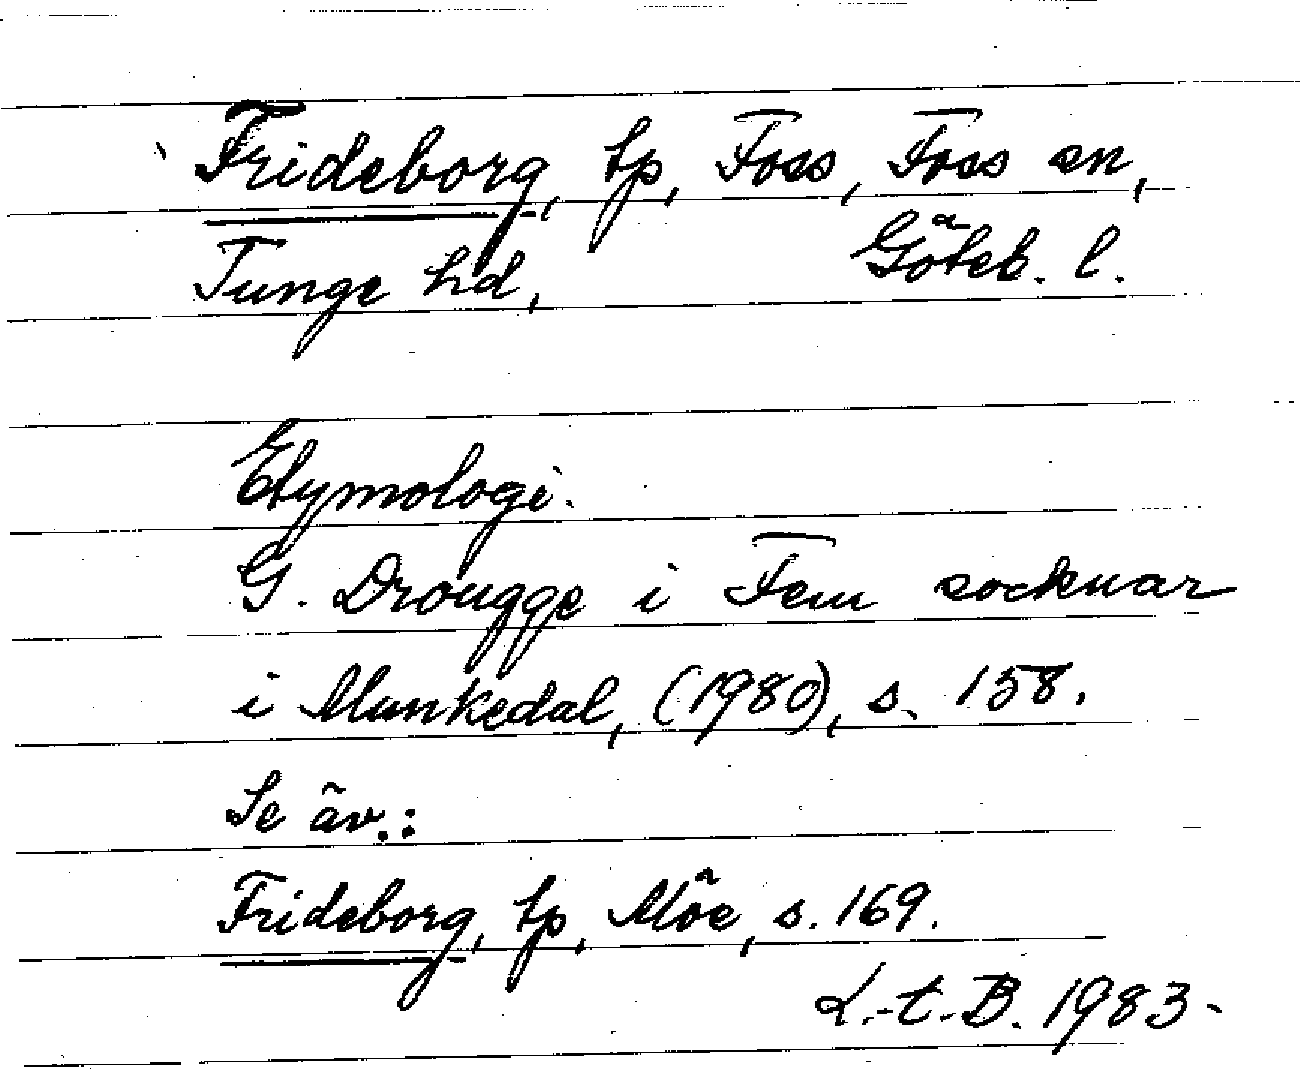 Frideborg, tp, Foss, Foss sn,
Tunge hd, Göteb. l.
Etymologi.
G. Drougge i Fem socknar
i Munkedal, (1980), s. 158.
Se äv.:
Frideborg, tp, Möe, s. 169.
L.-t.-B. 1983.